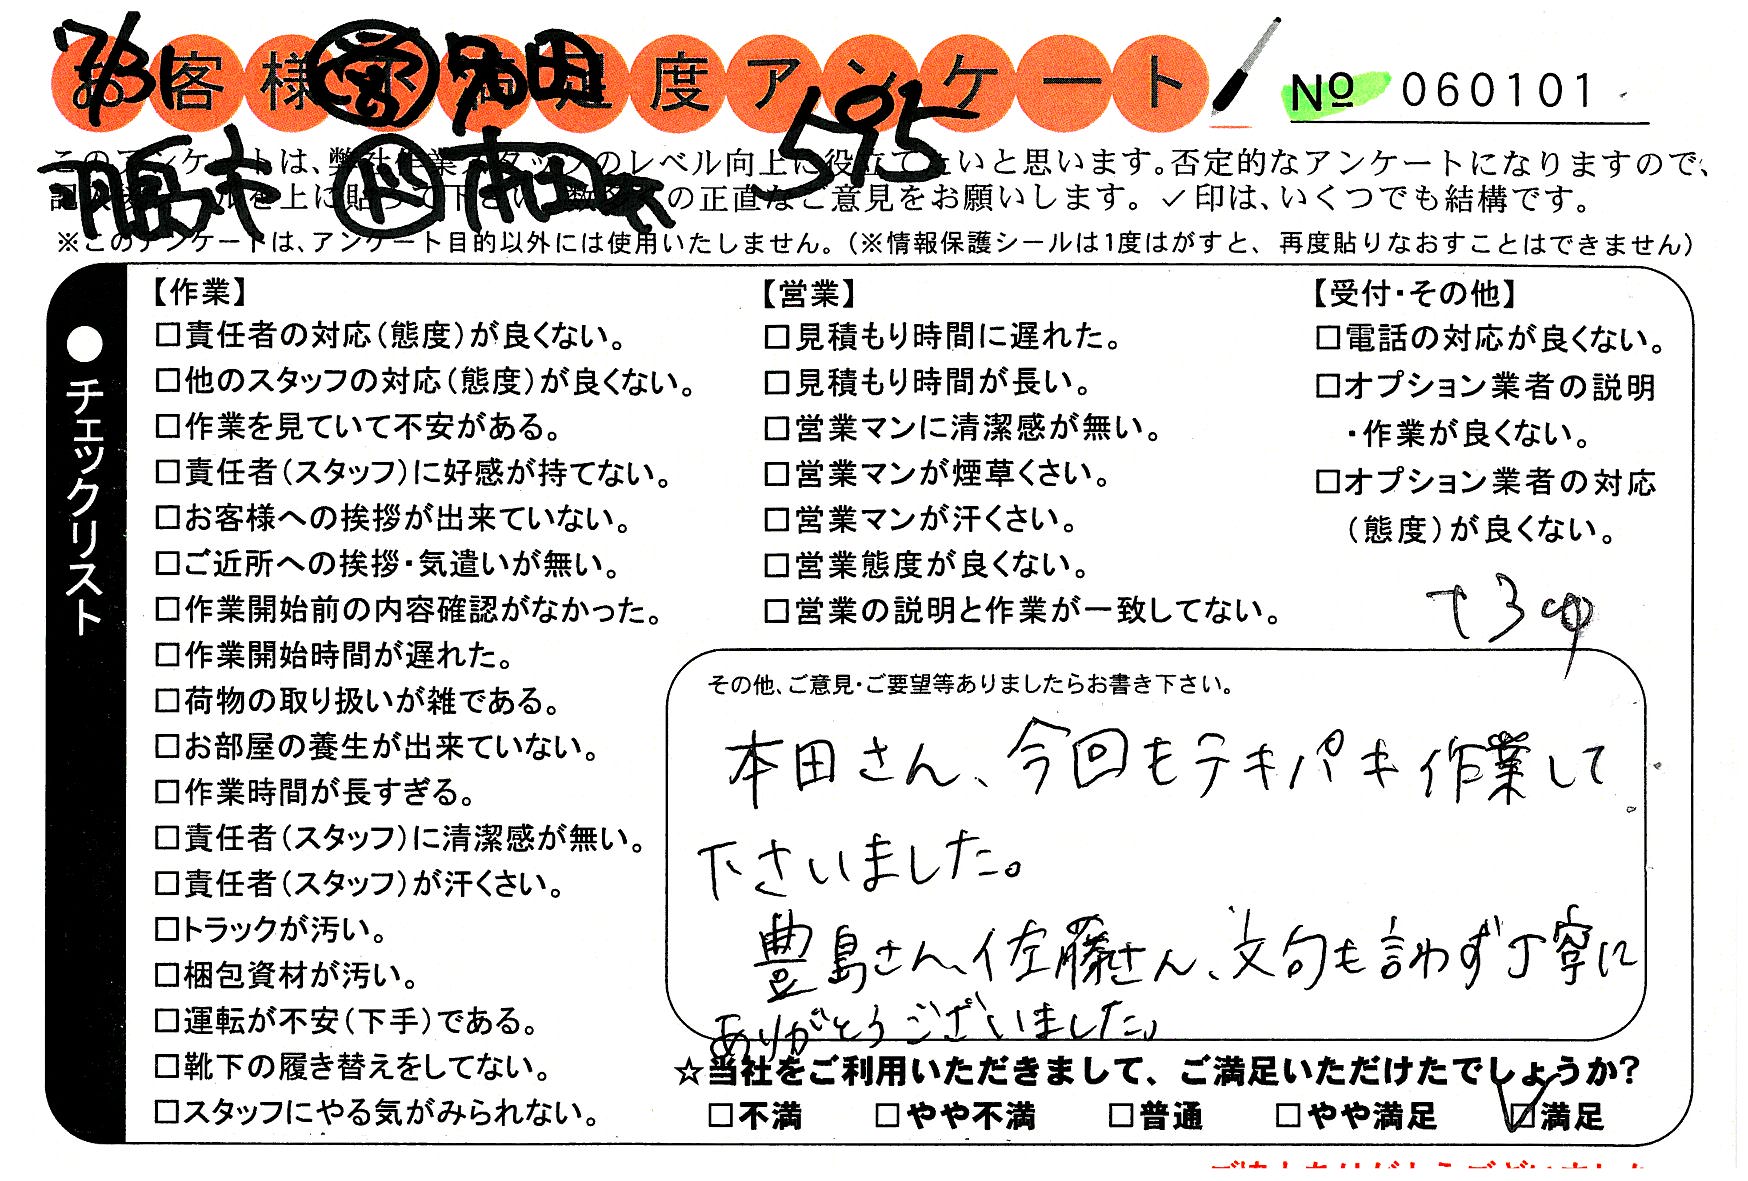 お客様不満足度アンケート
№ 060101
7/31 営 多田
595
このアンケートは、弊社作業スタッフのレベル向上に役立てたいと思います。否定的なアンケートになりますので、
を上に貼って下さい。の正直なご意見をお願いします。✓印は、いくつでも結構です。
※このアンケートは、アンケート目的以外には使用いたしません。（※情報保護シールは1度はがすと、再度貼りなおすことはできません）
●チェックリスト
【作業】
□責任者の対応（態度）が良くない。
□他のスタッフの対応（態度）が良くない。
□作業を見ていて不安がある。
□責任者（スタッフ）に好感が持てない。
□お客様への挨拶が出来ていない。
□ご近所への挨拶・気遣いが無い。
□作業開始前の内容確認がなかった。
□作業開始時間が遅れた。
□荷物の取り扱いが雑である。
□お部屋の養生が出来ていない。
□作業時間が長すぎる。
□責任者（スタッフ）に清潔感が無い。
□責任者（スタッフ）が汗くさい。
□トラックが汚い。
□梱包資材が汚い。
□運転が不安（下手）である。
□靴下の履き替えをしてない。
□スタッフにやる気がみられない。
【営業】
□見積もり時間に遅れた。
□見積もり時間が長い。
□営業マンに清潔感が無い。
□営業マンが煙草くさい。
□営業マンが汗くさい。
□営業態度が良くない。
□営業の説明と作業が一致してない。
【受付・その他】
□電話の対応が良くない。
□オプション業者の説明
・作業が良くない。
□オプション業者の対応
（態度）が良くない。
その他、ご意見・ご要望等ありましたらお書き下さい。
本田さん、今回もテキパキ作業して
下さいました。
豊島さん、佐藤さん、文句も言わず丁寧に
ありがとうございました。
☆当社をご利用いただきまして、ご満足いただけたでしょうか?
□不満 □やや不満 □普通 □やや満足 ☑満足